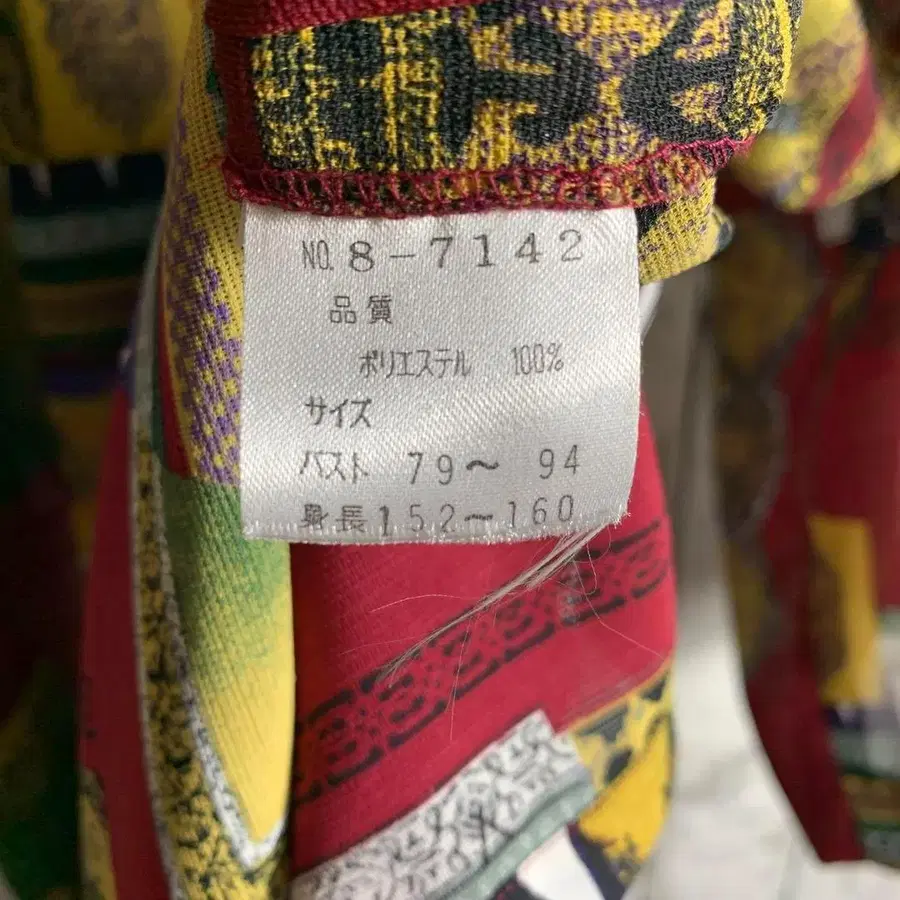 NO. 8-7142
品質
ポリエステル 100%
サイズ
バスト 79〜 94
身長152〜160